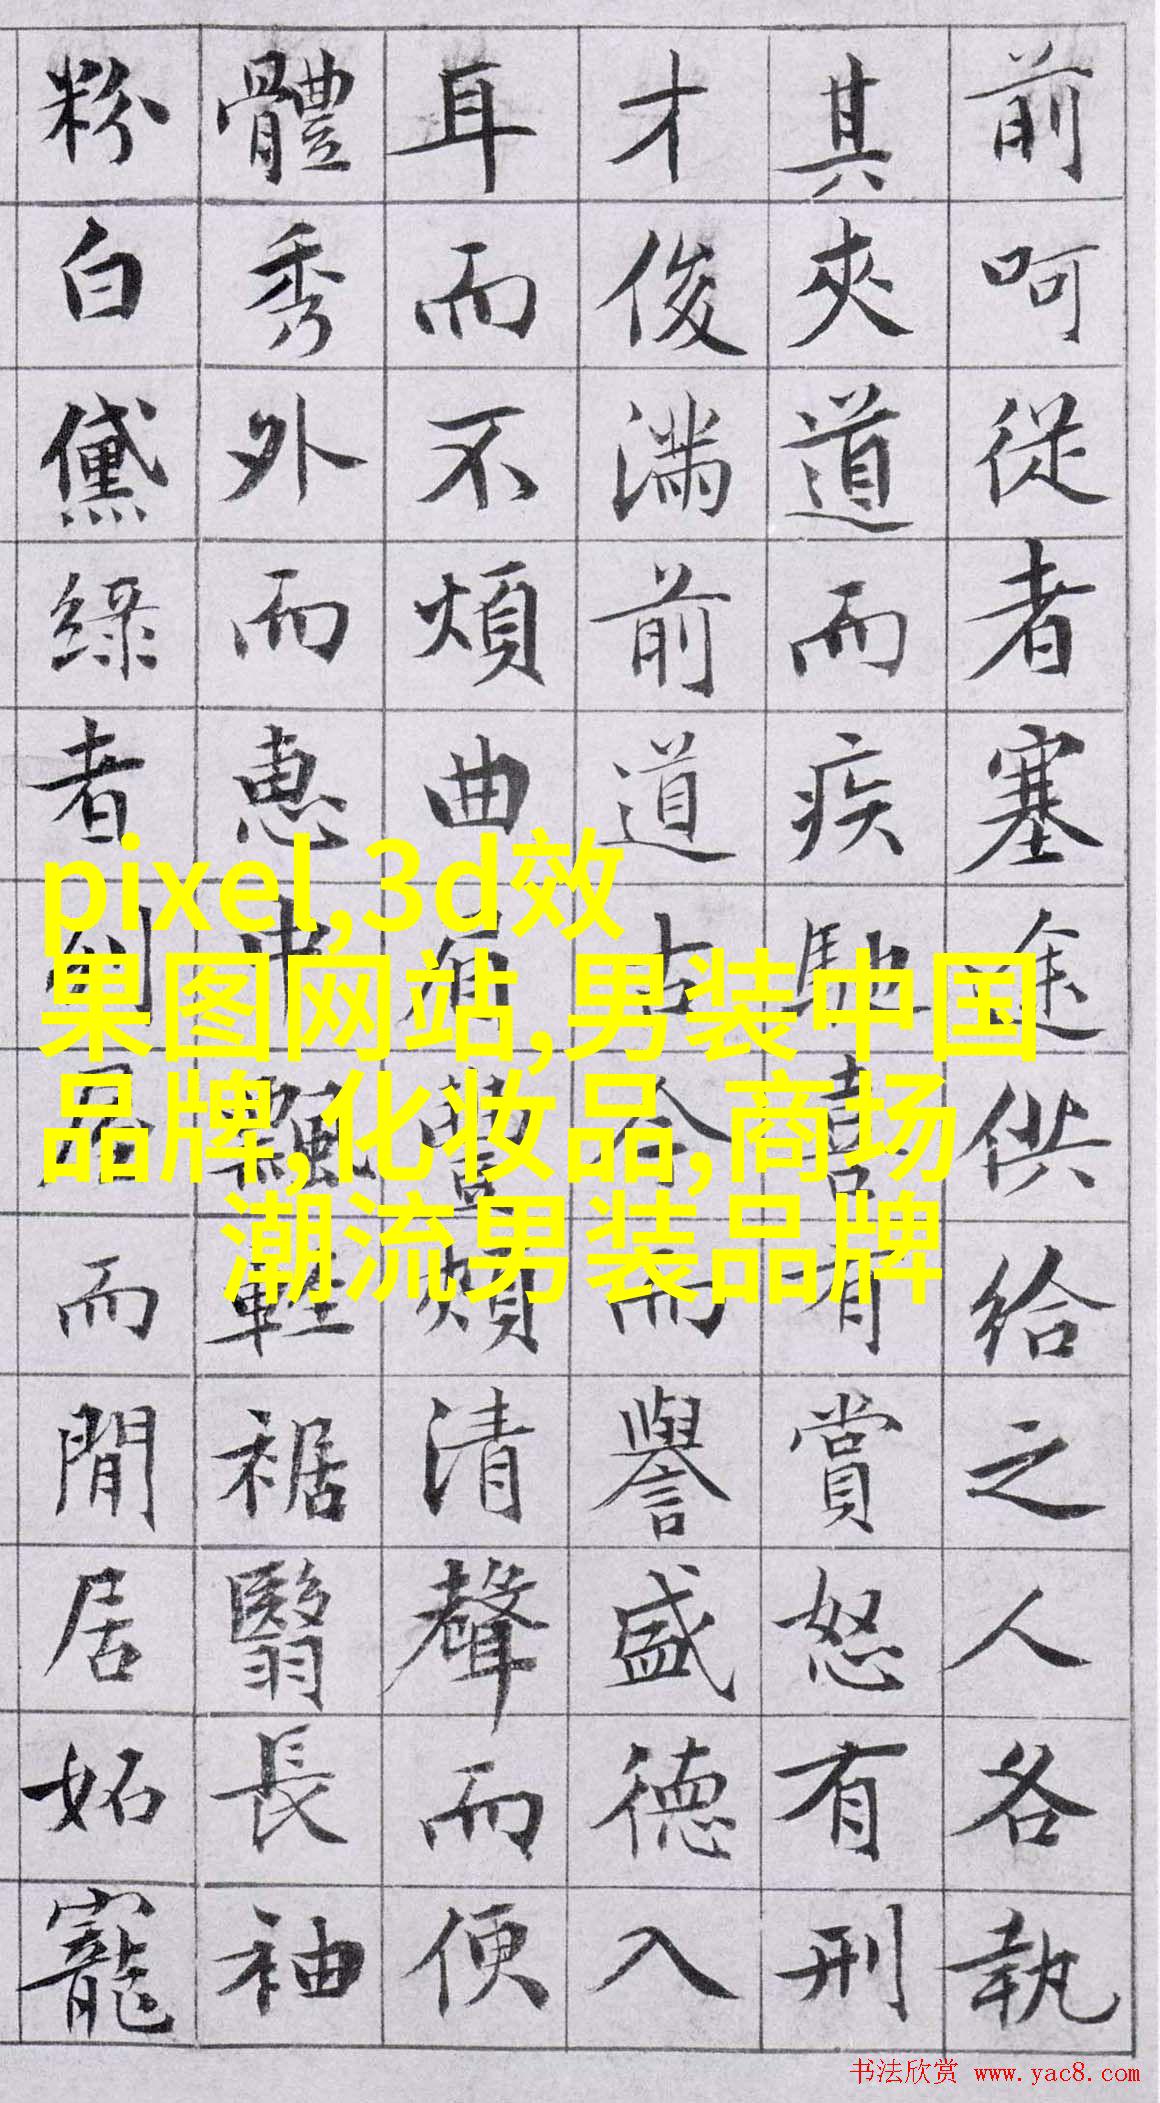 前呵從者塞途供給之人各執
其夾道而疾馳喜有賞怒有刑
才俊滿前道古今而譽盛德入
耳而不煩曲眉豐頰清聲而便
體秀外而惠中飄輕裾翳長袖
粉白黛綠者列屋而閒居妬寵
pixel,3d效
果图网站,男装中国
品牌,化妆品,商场
潮流男装品牌
书法欣赏 www.yac8.com